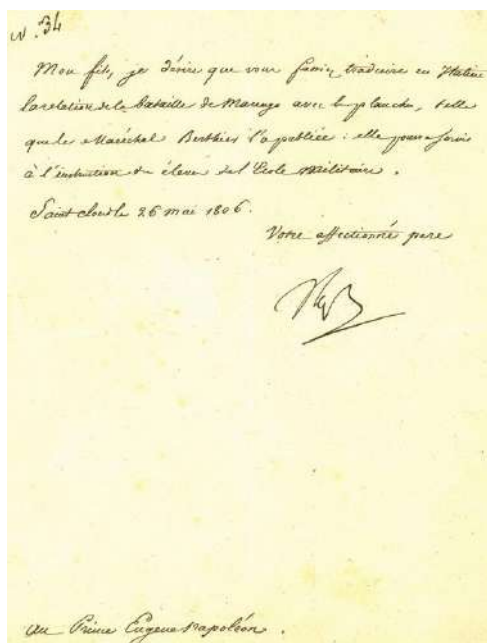 N. 34
Mon fils, je désire que vous fassiez traduire en Italien
la relation de la bataille de Marengo avec les planches, telle
que le Maréchal Berthier l'a publiée : elle pourra servir
à l'instruction des élèves de l'Ecole Militaire.
Saint Cloud le 26 mai 1806.
Votre affectionné pere
Au Prince Eugene Napoléon.